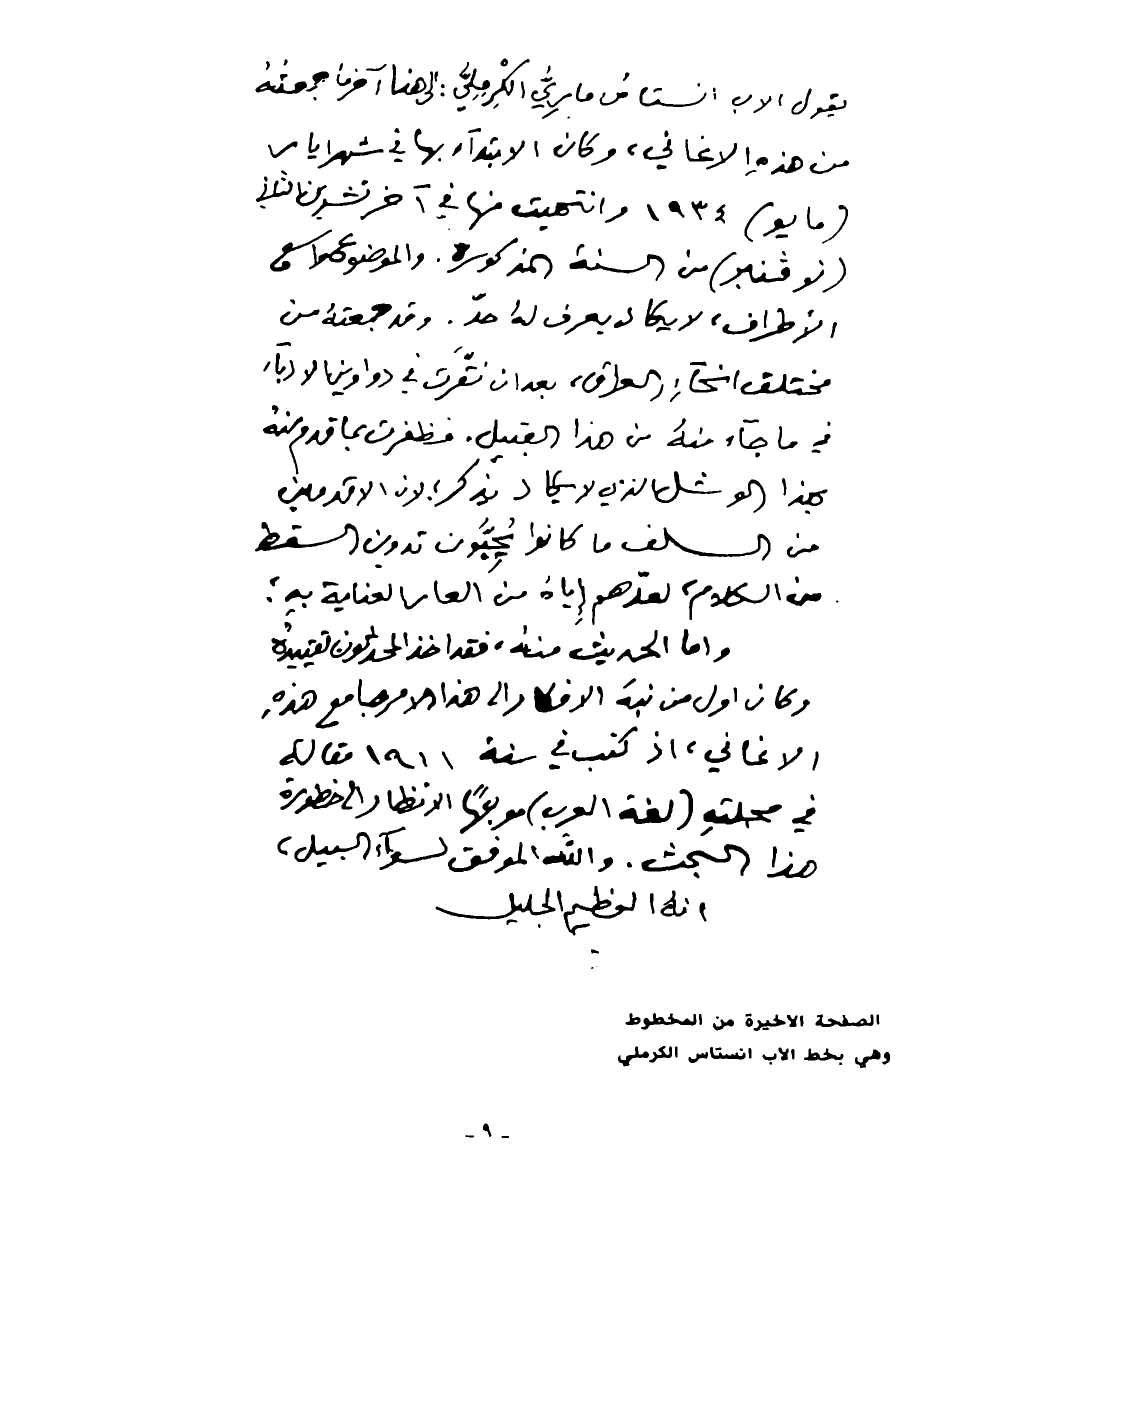 يقول الاب انستاس ماري الكرملي: الى هنا آخر ما جمعته
من هذه الاغاني، وكان الابتدآء بها في شهر ايار
(مايو) ١٩٣٤ وانتهيت منها في آخر تشرين الثاني
(نوڤنبر) من السنة المذكورة. والموضوع واسع
الأطراف، لا يكاد يعرف له حدّ. وقد جمعته من
مختلف انحآء العراق، بعد ان نقّرت في دواوين الادبآء
في ما جآء منه من هذا القبيل. فظفرت بما قدم منه
بهذا الوشل الذي لا يكاد يذكر؛ لان الاقدمين
من السلف ما كانوا يحبّون تدوين السقط
من الكلام، لعدّهم إياه من العار العناية به؛
واما الحديث منه، فقد اخذ المحدثون تقييده
وكان اول من نبه الافكار الى هذا الامر جامع هذه
الاغاني، اذ كتب في سنة ١٩١١ مقالة
في مجلته (لغة العرب) موجهًا الانظار الى خطورة
هذا البحث. والله الموفق لسوآء السبيل،
انه العظيم الجليل
الصفحة الاخيرة من المخطوط
وهي بخط الاب انستاس الكرملي
- ٩ -